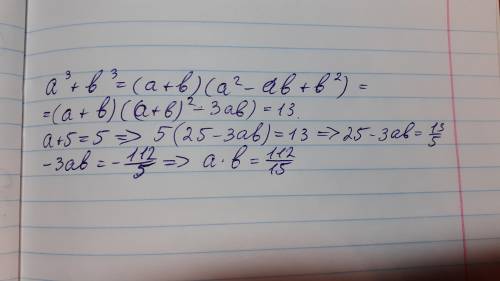 a³ + b³ = (a+b)(a² - ab + b²) =
= (a + b)((a+b)² - 3ab) = 13.
a+5 = 5 => 5(25 - 3ab) = 13 => 25 - 3ab = 13/5
-3ab = - 112/5 => a · b = 112/15